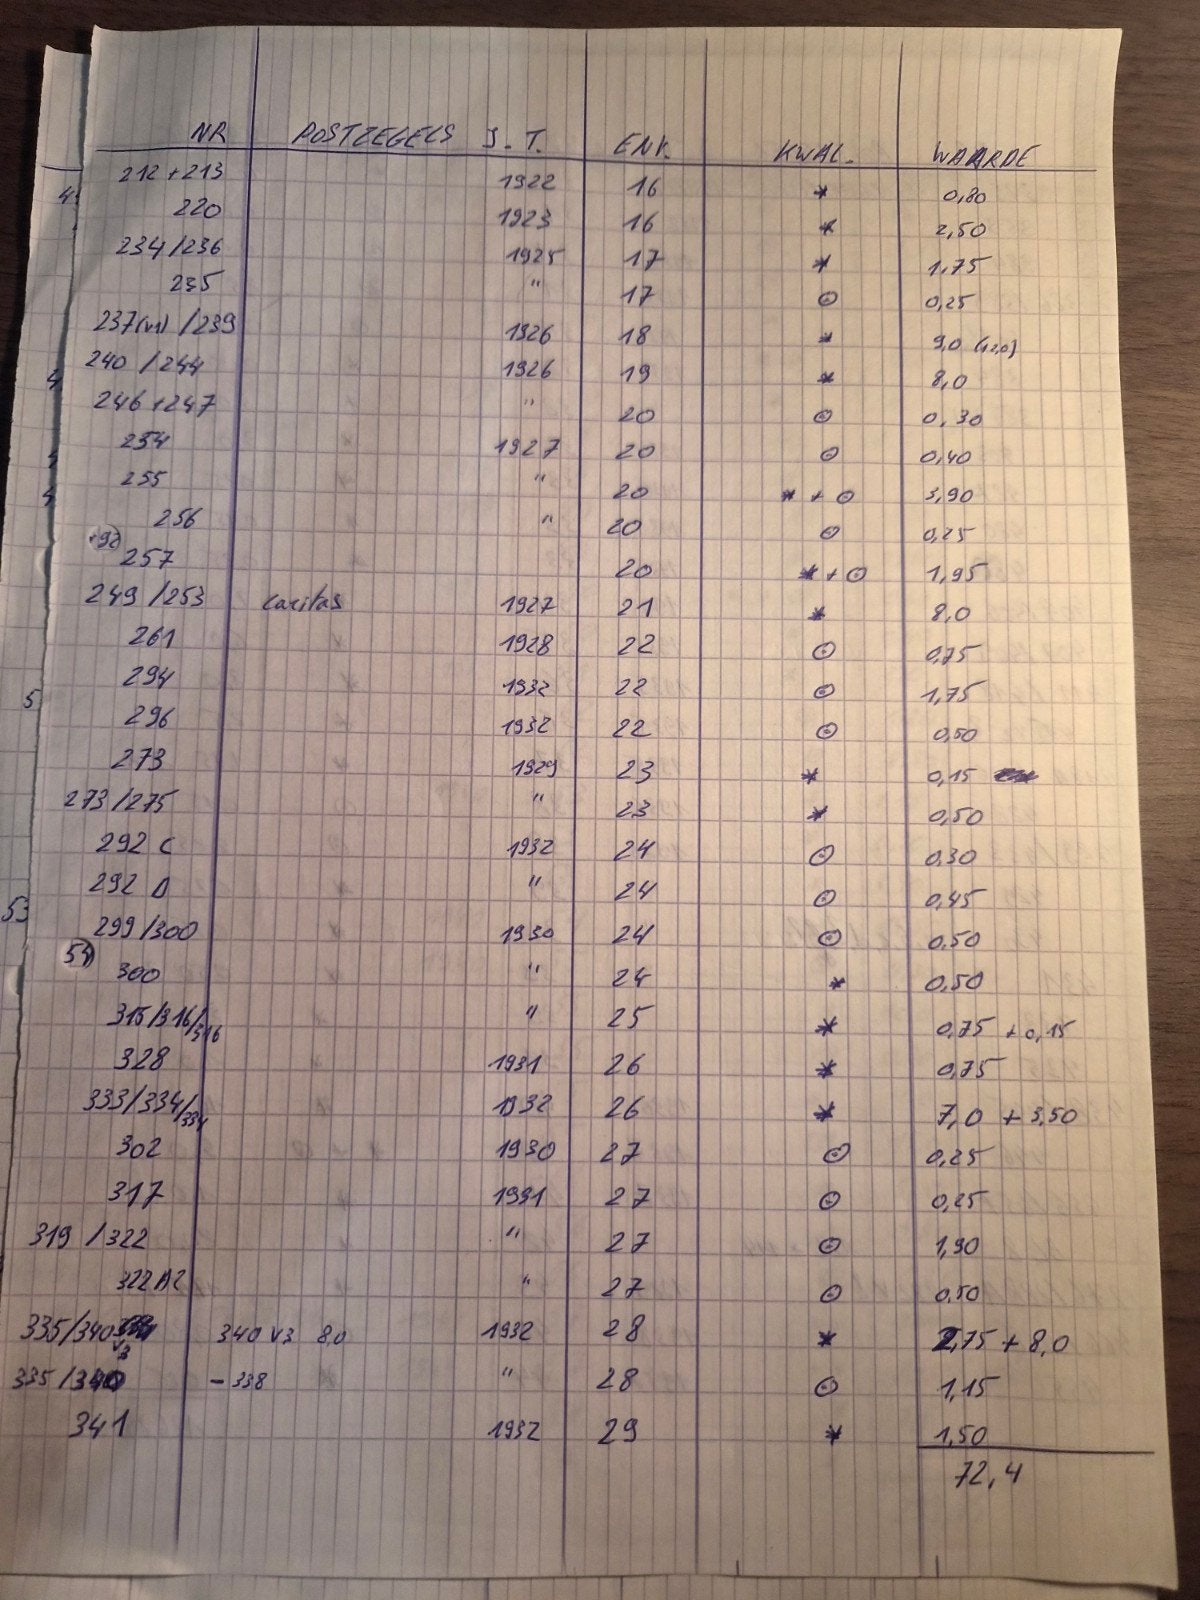 NR POSTZEGELS J.T. ENK. KWAL. WAARDE
212+213 1922 16 * 0,80
4
220 1923 16 * 2,50
234/236 1925 17 * 1,75
235 " 17 ⊙ 0,25
237(v1)/239 1926 18 * 9,0 (12,0)
240/244 1926 19 * 8,0
246+247 " 20 ⊙ 0,30
254 1927 20 ⊙ 0,40
255 " 20 * + ⊙ 3,90
256 " 20 ⊙ 0,25
257 20 * + ⊙ 1,95
249/253 caritas 1927 21 * 8,0
261 1928 22 ⊙ 0,75
294 1932 22 ⊙ 1,75
5
296 1932 22 ⊙ 0,50
273 1929 23 * 0,15
273/275 " 23 * 0,50
292 C 1932 24 ⊙ 0,30
292 D " 24 ⊙ 0,45
53
299/300 1930 24 ⊙ 0,50
300 " 24 * 0,50
315/316/316 " 25 * 0,75 + 0,15
328 1931 26 * 0,75
333/334/334 1932 26 * 7,0 + 3,50
302 1930 27 ⊙ 0,25
317 1931 27 ⊙ 0,25
319/322 " 27 ⊙ 1,90
322A2 " 27 ⊙ 0,50
335/340 340 V3 8,0 1932 28 * 2,75 + 8,0
V3
335/340 - 338 " 28 ⊙ 1,15
341 1932 29 * 1,50
72,4